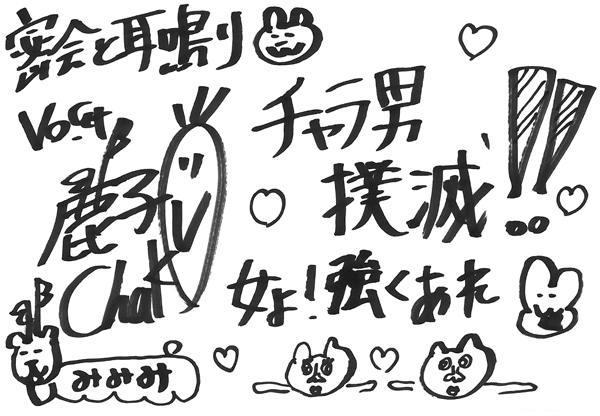 密会と耳鳴り
Vo.Gt.
麗子
Chalk
チャラ男
撲滅!!
女よ!強くあれ
みみみ